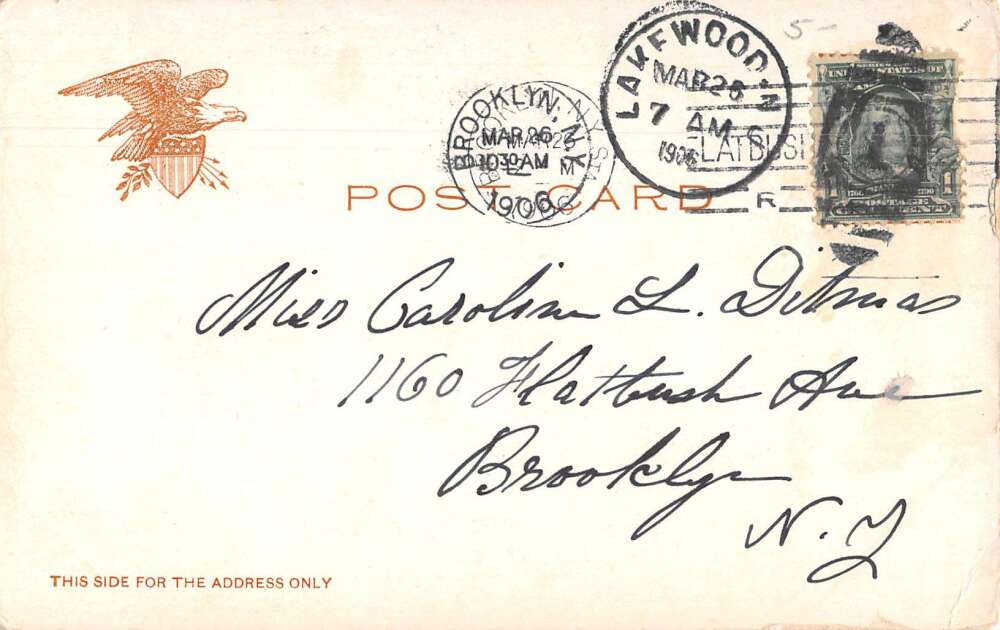 5-
LAKEWOOD, N
MAR 26
7 AM
1906
BROOKLYN, N.Y.
MAR 26
10 30 AM
1906
STA
LATBUSH
R
SERIES
UNITED STATES OF
POST CARD
Miss Caroline L. Ditmas
1160 Flatbush Ave
Brooklyn
N.Y
THIS SIDE FOR THE ADDRESS ONLY